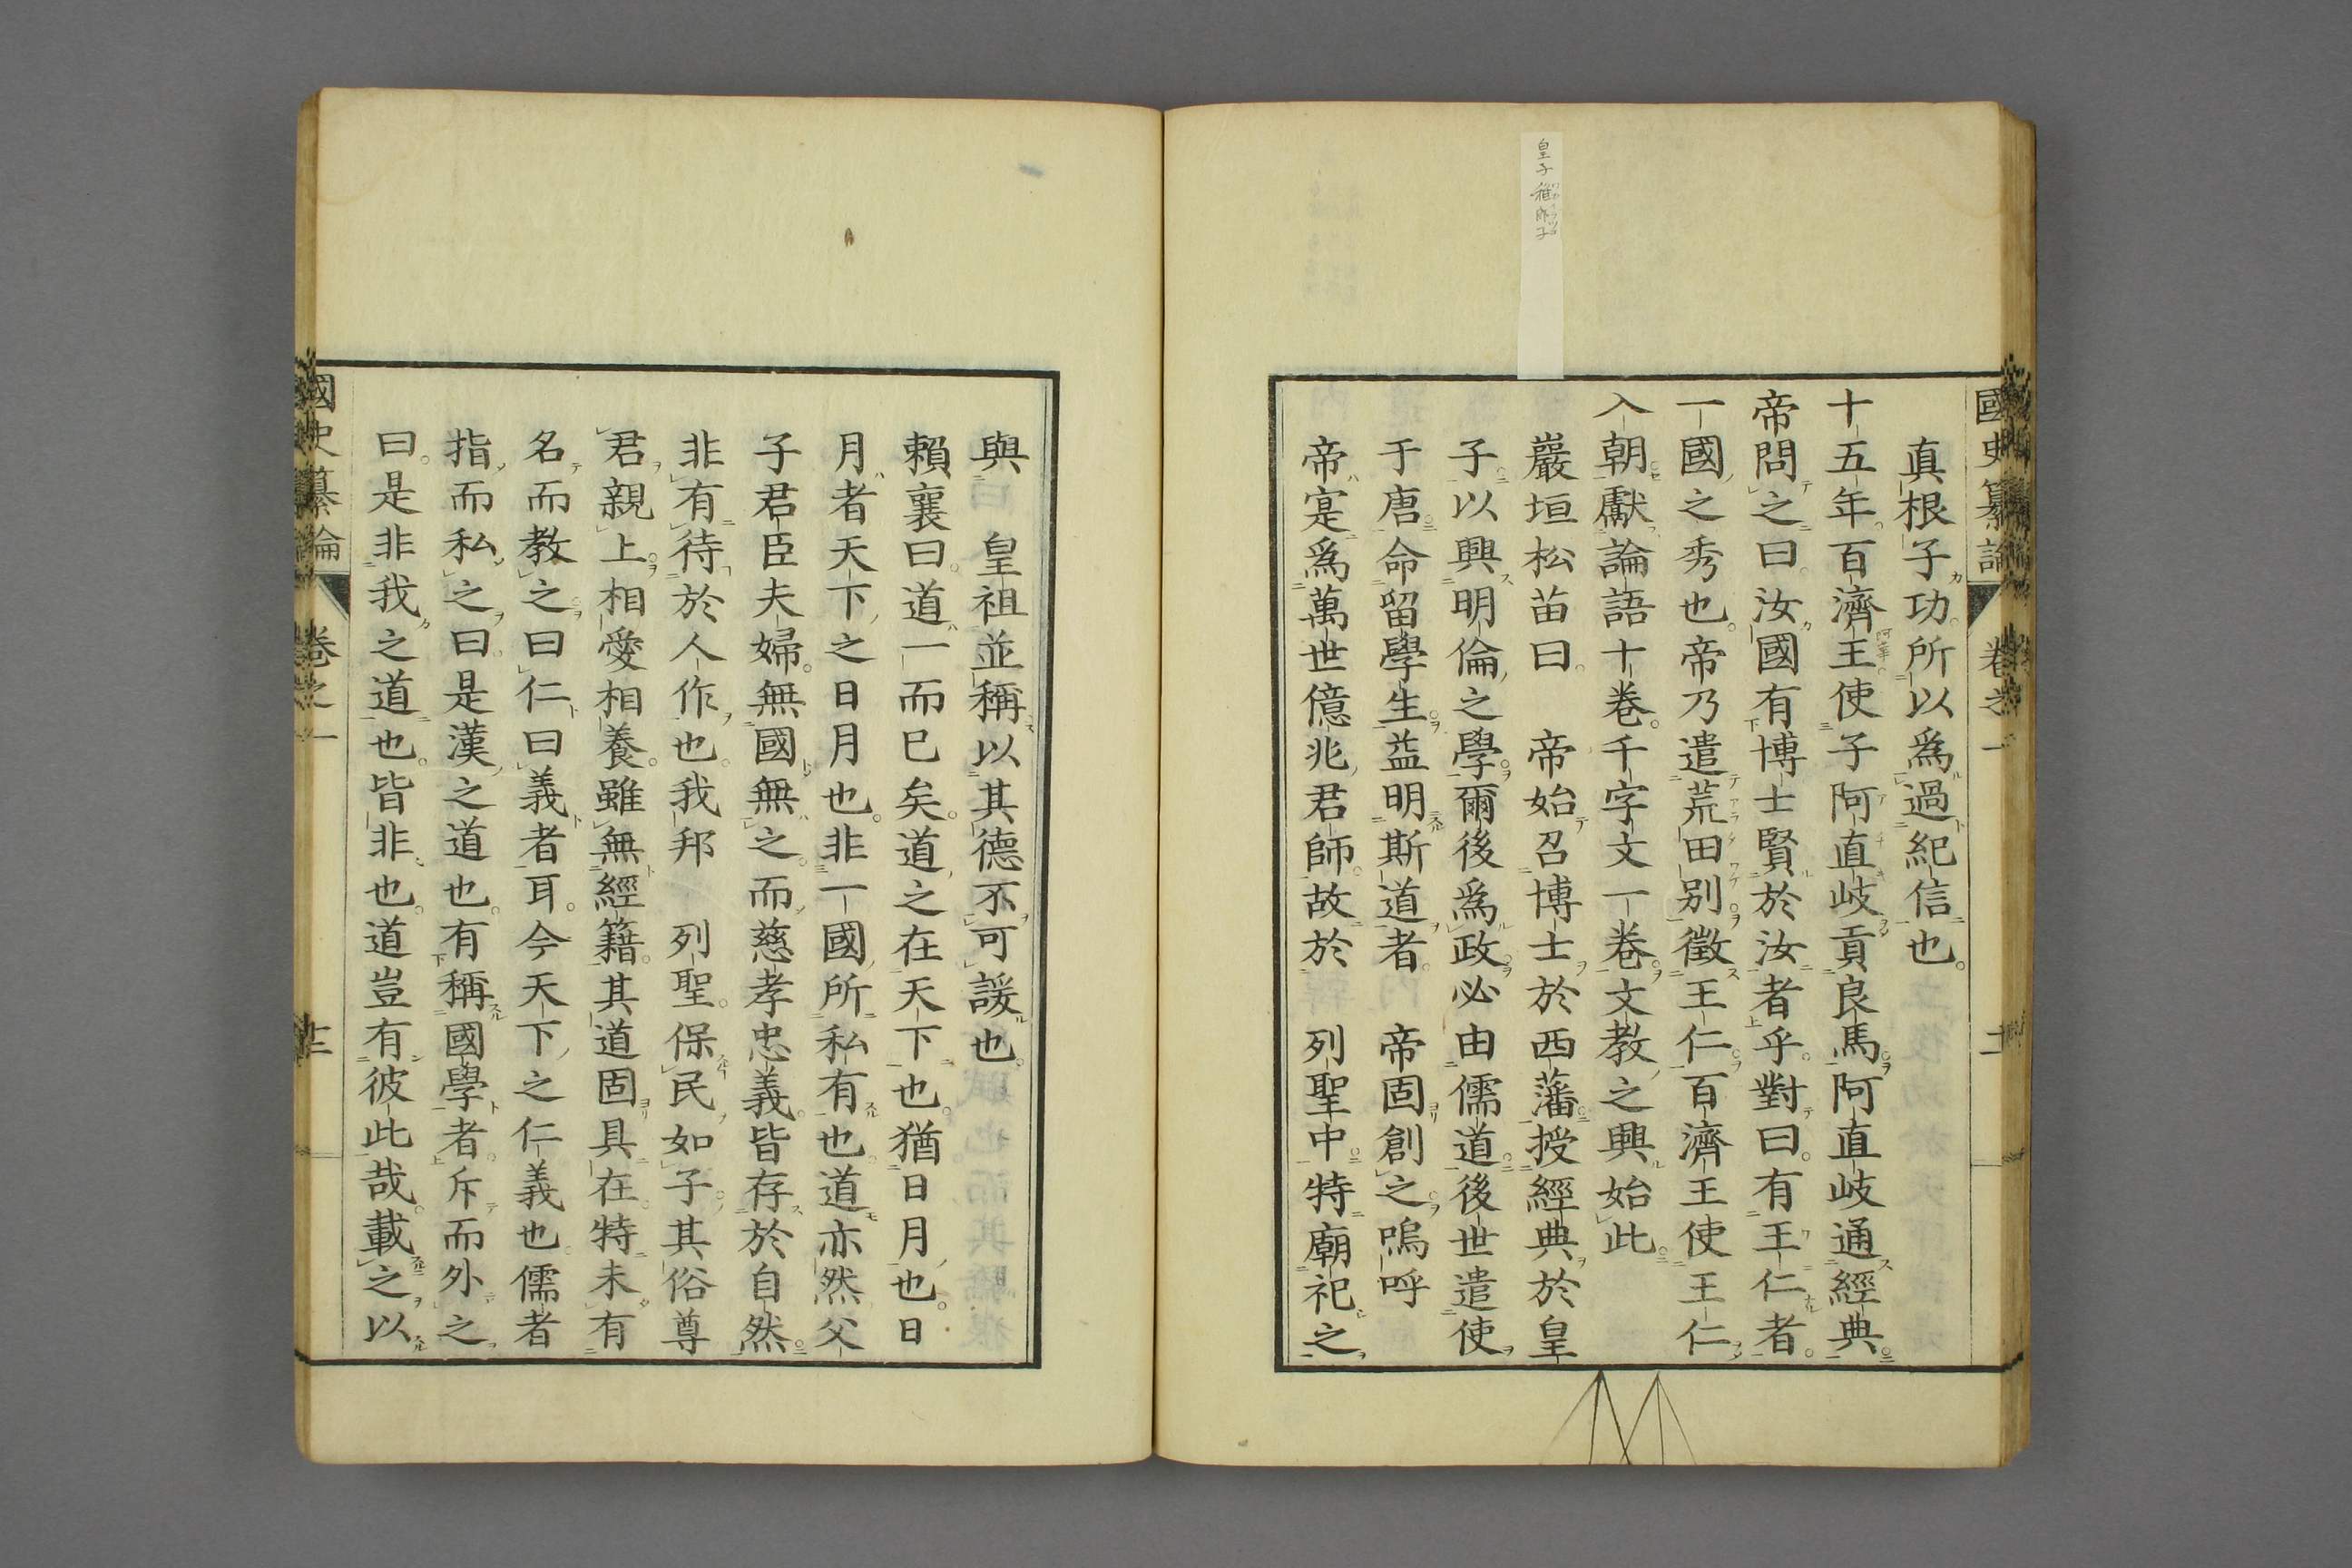 皇子稚郎子
國史纂論 卷之一
真根子功所以爲過紀信也。
十五年百濟王阿華。使子阿直岐貢良馬。阿直岐通經典。
帝問之曰。汝國有博士賢於汝者乎。對曰。有王仁者。
一國之秀也。帝乃遣荒田别徵王仁。百濟王使王仁
入朝獻論語十卷。千字文一卷。文教之興始此。
巖垣松苗曰。 帝始召博士於西藩。授經典於皇
子。以興明倫之學。爾後爲政。必由儒道。後世遣使
于唐。命留學生。益明斯道者。 帝固創之。嗚呼
帝寔爲萬世億兆君師。故於 列聖中特廟祀之
與 皇祖並稱以其德不可諼也。
賴襄曰。道一而已矣。道之在天下也。猶日月也。日
月者天下之日月也。非一國所私有也。道亦然父
子君臣夫婦。無國無之。而慈孝忠義。皆存於自然。
非有待於人作也。我邦 列聖。保民如子。其俗尊
君親上。相愛相養。雖無經籍。其道固具在。特未有
名而教之。曰仁曰義者耳。今天下之仁義也。儒者
指而私之曰。是漢之道也。有稱國學者。斥而外之
曰。是非我之道也。皆非也。道豈有彼此哉。載之以
國史纂論 卷之一